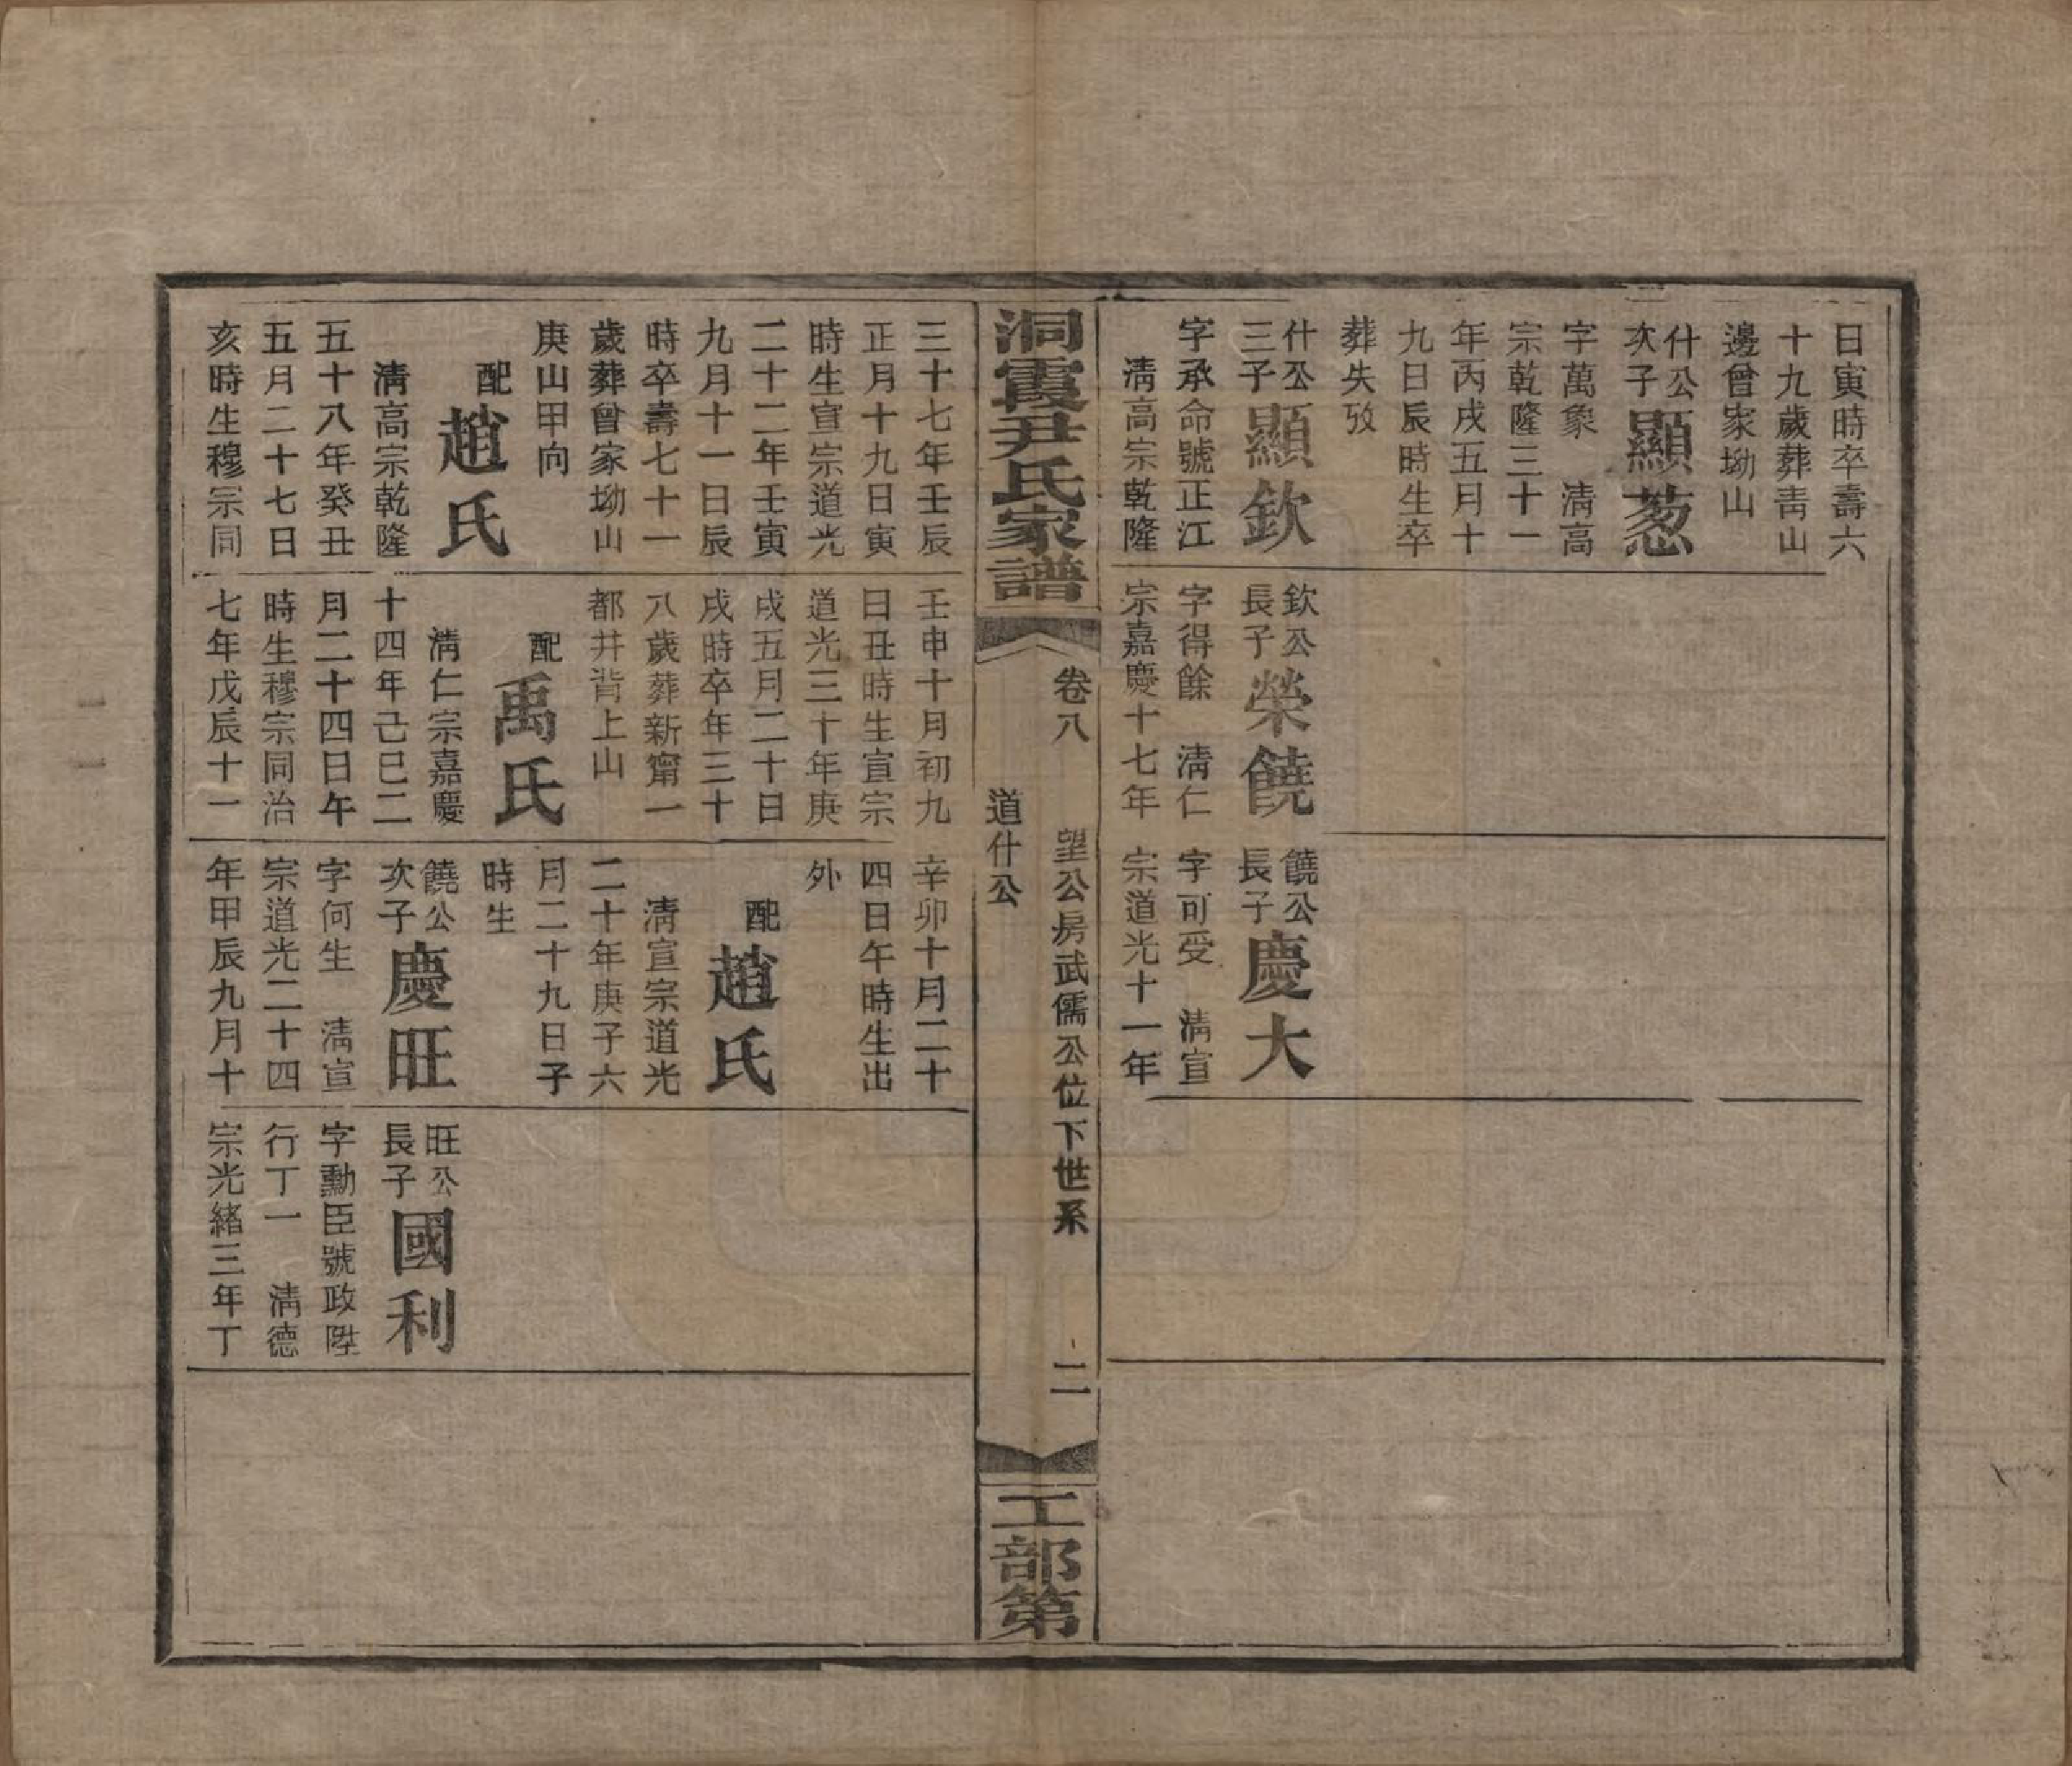 日寅時卒壽六
十九歲葬靑山
邊曾家坳山
什公
次子
顯葱
字萬象　淸高
宗乾隆三十一
年丙戌五月十
九日辰時生卒
葬失攷
什公
三子
顯欽
字承命號正江
淸高宗乾隆
欽公
長子
榮饒
字得餘　淸仁
宗嘉慶十七年
饒公
長子
慶大
字可受　淸宣
宗道光十一年
洞霞尹氏家譜
卷八　望公房武儒公位下世系　二
道什公
工部第
三十七年壬辰
正月十九日寅
時生宣宗道光
二十二年壬寅
九月十一日辰
時卒壽七十一
歲葬曾家坳山
庚山甲向
配
趙氏
淸高宗乾隆
五十八年癸丑
五月二十七日
亥時生穆宗同
壬申十月初九
日丑時生宣宗
道光三十年庚
戌五月二十日
戌時卒年三十
八歲葬新甯一
都井背上山
配
禹氏
淸仁宗嘉慶
十四年己巳二
月二十四日午
時生穆宗同治
七年戊辰十一
辛卯十月二十
四日午時生出
外
配
趙氏
淸宣宗道光
二十年庚子六
月二十九日子
時生
饒公
次子
慶旺
字何生　淸宣
宗道光二十四
年甲辰九月十
旺公
長子
國利
字勳臣號政陞
行丁一　淸德
宗光緒三年丁